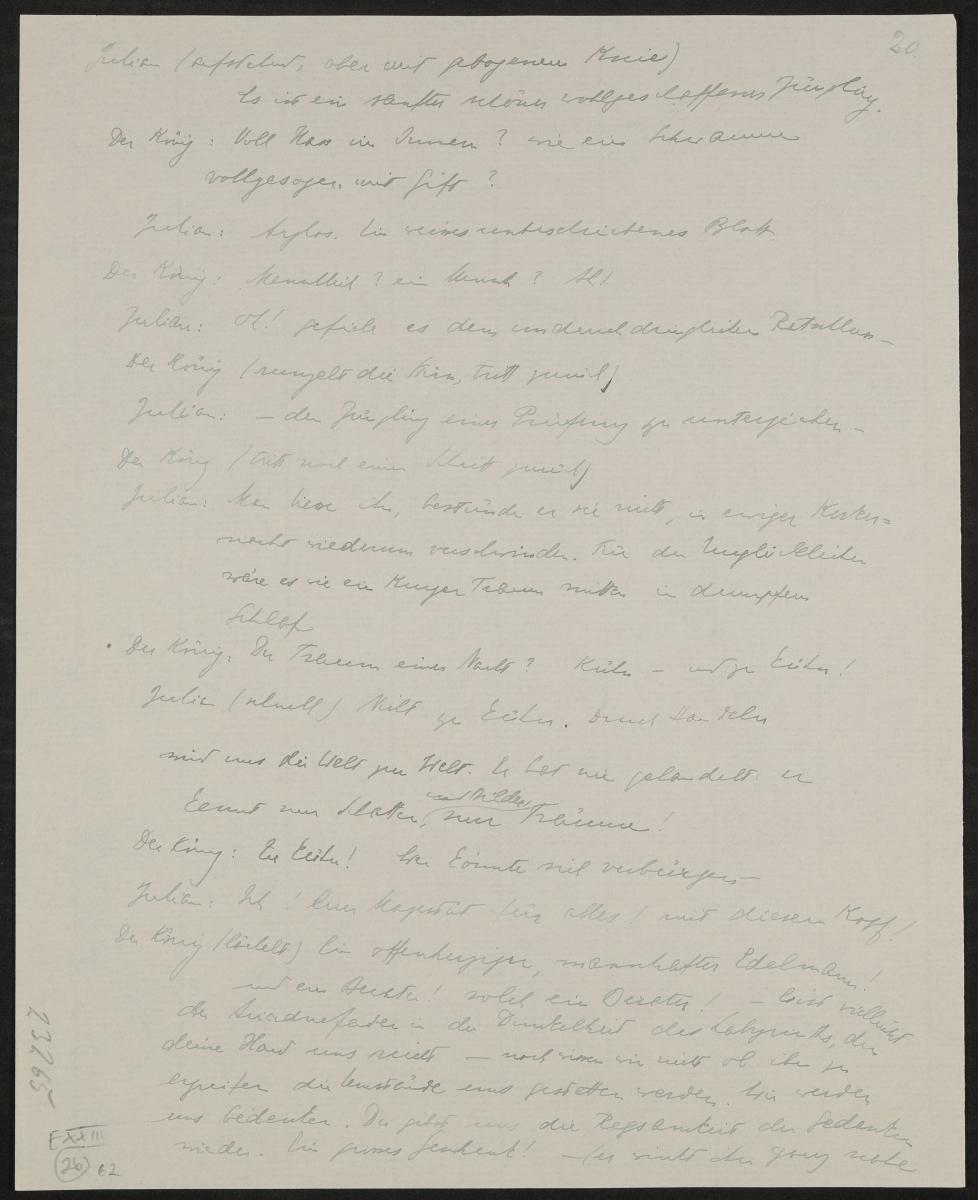 20.
Julian (aufstehend, aber mit gebogenem Knie)
Es ist ein sanfter schöner wohlgeschaffener Jüngling.
Der König: Voll Hass im Innern? wie ein Schwamm
vollgesogen mit Gift?
Julian: Arglos. Ein weisses unbeschriebenes Blatt.
Der König: Menschlich? ein Mensch? Ah!
Julian: Oh! gefiele es dem undurchdringlichen Ratschluss –
Der König (runzelt die Stirn, tritt zurück)
Julian: – den Jüngling einer Prüfung zu unterziehen –
Der König (tritt noch einen Schritt zurück)
Julian: Man liesse ihn, bestünde er sie nicht, in ewiger Kerker=
nacht wiederum verschwinden. Für den Unglücklichen
wäre es wie ein kurzer Traum mitten in dumpfem
Schlaf
Der König: Der Traum einer Nacht? Kühn – und zu kühn!
Julian (schnell) Nicht zu kühn. Durch Handeln
wird uns die Welt zur Welt. Er hat nie gehandelt: er
und Bilder
kennt nur Schatten, nur Träume!
Der König: Zu kühn! Wer könnte sich verbürgen –
Julian: Ich! Eurer Majestät für alles! mit diesem Kopf!
Der König (lächelt) Ein offenherziger, mannhafter Edelmann!
und ein Berater! solch ein Berater! – Es ist vielleicht
der Ariadnefaden in der Dunkelheit des Labyrinths, den
deine Hand uns reicht – noch wissen wir nicht ob ihn zu
ergreifen die Umstände uns gestatten werden. Wir werden
uns bedenken. Du gibst uns die Regsamkeit der Gedanken
wieder. Ein grosses Geschenk! – (er winkt ihn ganz nahe
23265
E XXIII
(26) 62